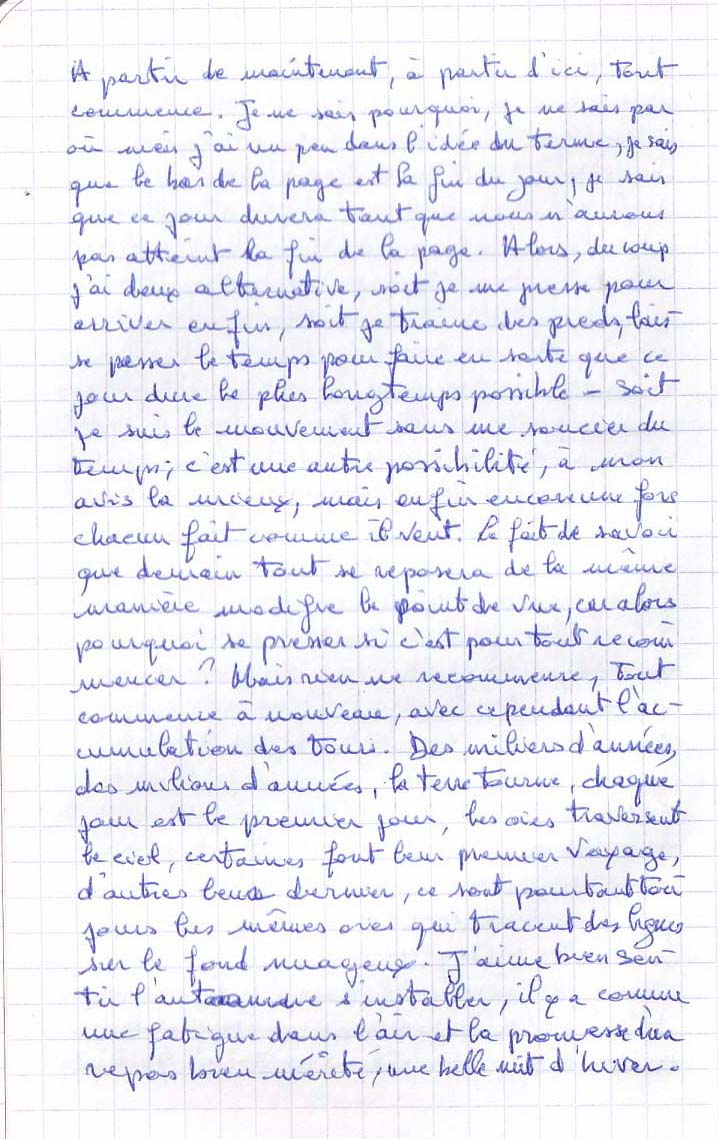 A partir de maintenant, à partir d'ici, tout
commence. Je ne sais pourquoi, je ne sais par
où mais j'ai un peu dans l'idée du terme, je sais
que le bas de la page est la fin du jour, je sais
que ce jour durera tant que nous n'aurons
pas atteint la fin de la page. Alors, du coup
j'ai deux alternative, soit je me presse pour
arriver enfin, soit je traine des pieds, lais-
se passer le temps pour faire en sorte que ce
jour dure le plus longtemps possible – soit
je suis le mouvement sans me soucier du
temps; c'est une autre possibilité, à mon
avis la mieux, mais enfin encore une fois
chacun fait comme il veut. Le fait de savoir
que demain tout se reposera de la même
manière modifie le point de vue, car alors
pourquoi se presser si c'est pour tout recom
mencer ? Mais rien ne recommence, tout
commence à nouveau, avec cependant l'ac-
cumulation des tours. Des milliers d'années,
des millions d'années, la terre tourne, chaque
jour est le premier jour, les oies traversent
le ciel, certaines font leur premier voyage,
d'autres leur dernier, ce sont pourtant tou
jours les mêmes oies qui tracent des lignes
sur le fond nuageux. J'aime bien sen-
tir l'automne s'installer, il y a comme
une fatigue dans l'air et la promesse d'un
repos bien mérité, une belle nuit d'hiver.